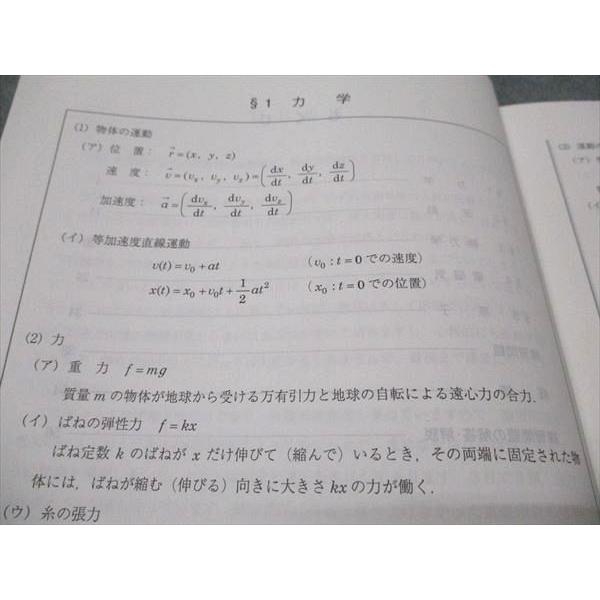 §1 力 学
(1) 物体の運動
(ア) 位 置: r⃗=(x, y, z)
速 度: v⃗=(vₓ, v_y, v_z)=(dx/dt, dy/dt, dz/dt)
加速度: a⃗=(dvₓ/dt, dv_y/dt, dv_z/dt)
(イ) 等加速度直線運動
v(t)=v₀+at (v₀:t=0での速度)
x(t)=x₀+v₀t+1/2 at² (x₀:t=0での位置)
(2) 力
(ア) 重 力 f=mg
質量 m の物体が地球から受ける万有引力と地球の自転による遠心力の合力.
(イ) ばねの弾性力 f=kx
ばね定数 k のばねが x だけ伸びて (縮んで) いるとき, その両端に固定された物
体には, ばねが縮む (伸びる) 向きに大きさ kx の力が働く.
(ウ) 糸の張力
(3) 運動の
(ア)